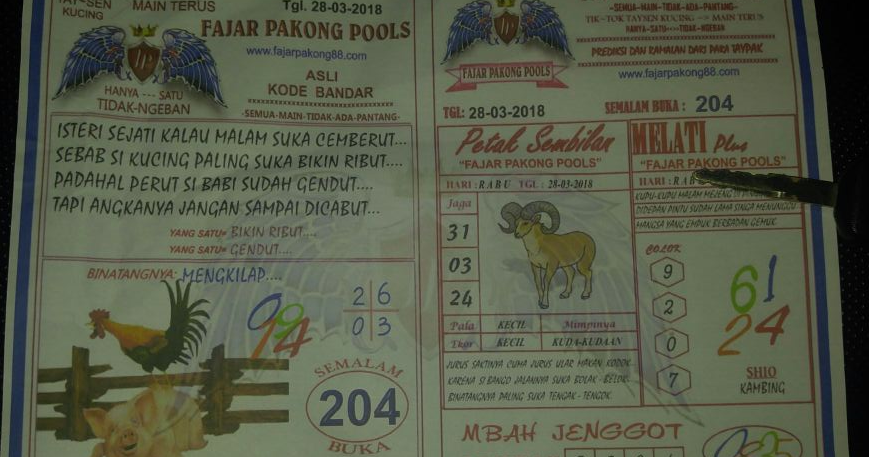 TAY-SEN
KUCING
MAIN TERUS
Tgl. 28-03-2018
FAJAR PAKONG POOLS
www.fajarpakong88.com
HANYA --- SATU
TIDAK-NGEBAN
ASLI
KODE BANDAR
-SEMUA-MAIN-TIDAK-ADA-PANTANG-
ISTERI SEJATI KALAU MALAM SUKA CEMBERUT...
SEBAB SI KUCING PALING SUKA BIKIN RIBUT....
PADAHAL PERUT SI BABI SUDAH GENDUT....
TAPI ANGKANYA JANGAN SAMPAI DICABUT...
YANG SATU= BIKIN RIBUT....
YANG SATU= GENDUT....
BINATANGNYA: MENGKILAP....
2 6
0 3
SEMALAM
204
BUKA
-SEMUA-MAIN-TIDAK-ADA-PANTANG-
TIK-TOK TAYSEN KUCING --> MAIN TERUS
HANYA-SATU--->TIDAK-NGEBAN
PREDIKSI DAN RAMALAN DARI PARA TAYPAK
FAJAR PAKONG POOLS
www.fajarpakong88.com
TGL: 28-03-2018
SEMALAM BUKA : 204
Petak Sembilan
"FAJAR PAKONG POOLS"
HARI : RABU TGL : 28-03-2018
Jaga
31
03
24
Pala KECIL Mimpinya
Ekor KECIL KUDA-KUDAAN
JURUS SAKTINYA CUMA JURUS ULAR MAKAN KODOK.
KARENA SI BANGO JALANNYA SUKA BOLAK - BELOK.
BINATANGNYA PALING SUKA TENGAK - TENGOK.
MELATI Plus
"FAJAR PAKONG POOLS"
HARI : RAB
KUPU-KUPU MALAM MEJENG DI
DIDEPAN PINTU SUDAH LAMA SINGA MENUNGGU
MANGSA YANG EMPUK BERBADAN GEMUK.
COLOK
9
2
0
7
61
24
SHIO
KAMBING
MBAH JENGGOT